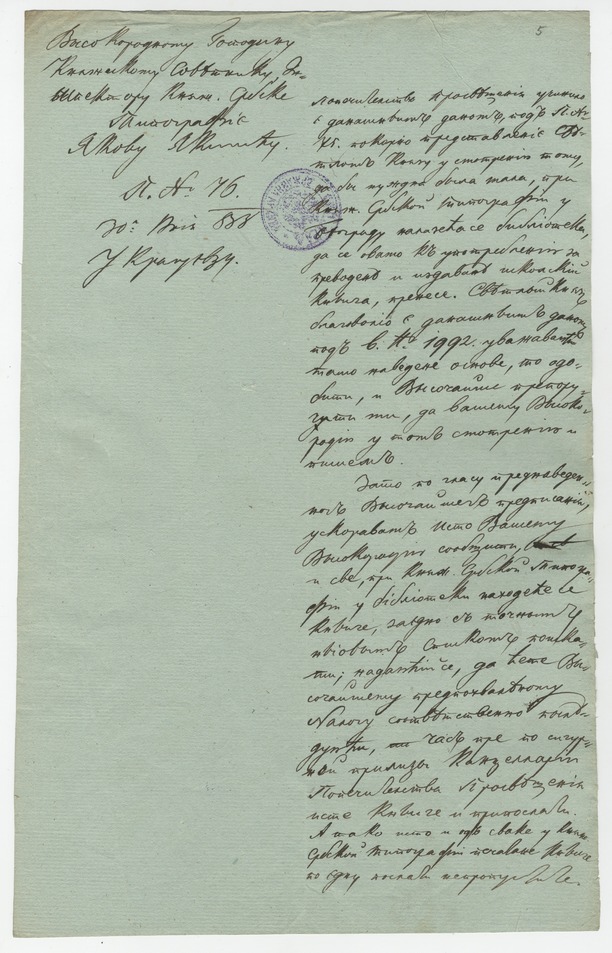 5
Високородному Господину
Књажескому Совѣтнику, Ин-
шпектору Књаж. Србске
Типографіє
Якову Якшићу.
П. № 76.
у Крагуевцу.
Попечителство Просвѣщенія учинило
є данашньимъ даномъ, подъ П. №
75. покорно представленіє Свѣ-
тломъ Књазу у смотренію тому,
да бы нуждно было, при
Књаж. Србской типографіи у
Београду налазећа се библіотека,
да се овамо къ употребленію за
преводенѣ и издаванѣ школскій
књига, пренесе. Свѣтлый Књазъ
благоволіо є данашньимъ даномъ
подъ В. № 1992. уважавати
тамо наведене основе, то одо-
брити, и Высочайше препору-
чити ми, да Вашему Високо-
родію у томъ смотренію и
пишемъ.
Зато по гласу преднаведен-
ногъ Высочайшегъ предписанія,
ускоравамъ исто Вашему
Високородію сообщити,
и све, при Књаж. Србской Типогра-
фіи у библіотеки находеће се
књиге, заедно съ точнымъ
њиовымъ спискомъ поиска-
ти; надаюћи се, да ћете Вы-
сочайшему предпохвалѣному
Налогу соотвѣтственно послѣ-
дуюћи, часъ пре по сигур-
ной прилики Канцелларіи
Попечителства Просвѣщенія
исте књиге и припослати.
А тако исто и одъ сваке у Књаж.
Србской типографіи печатане књиге
по єдну послати непропустите.